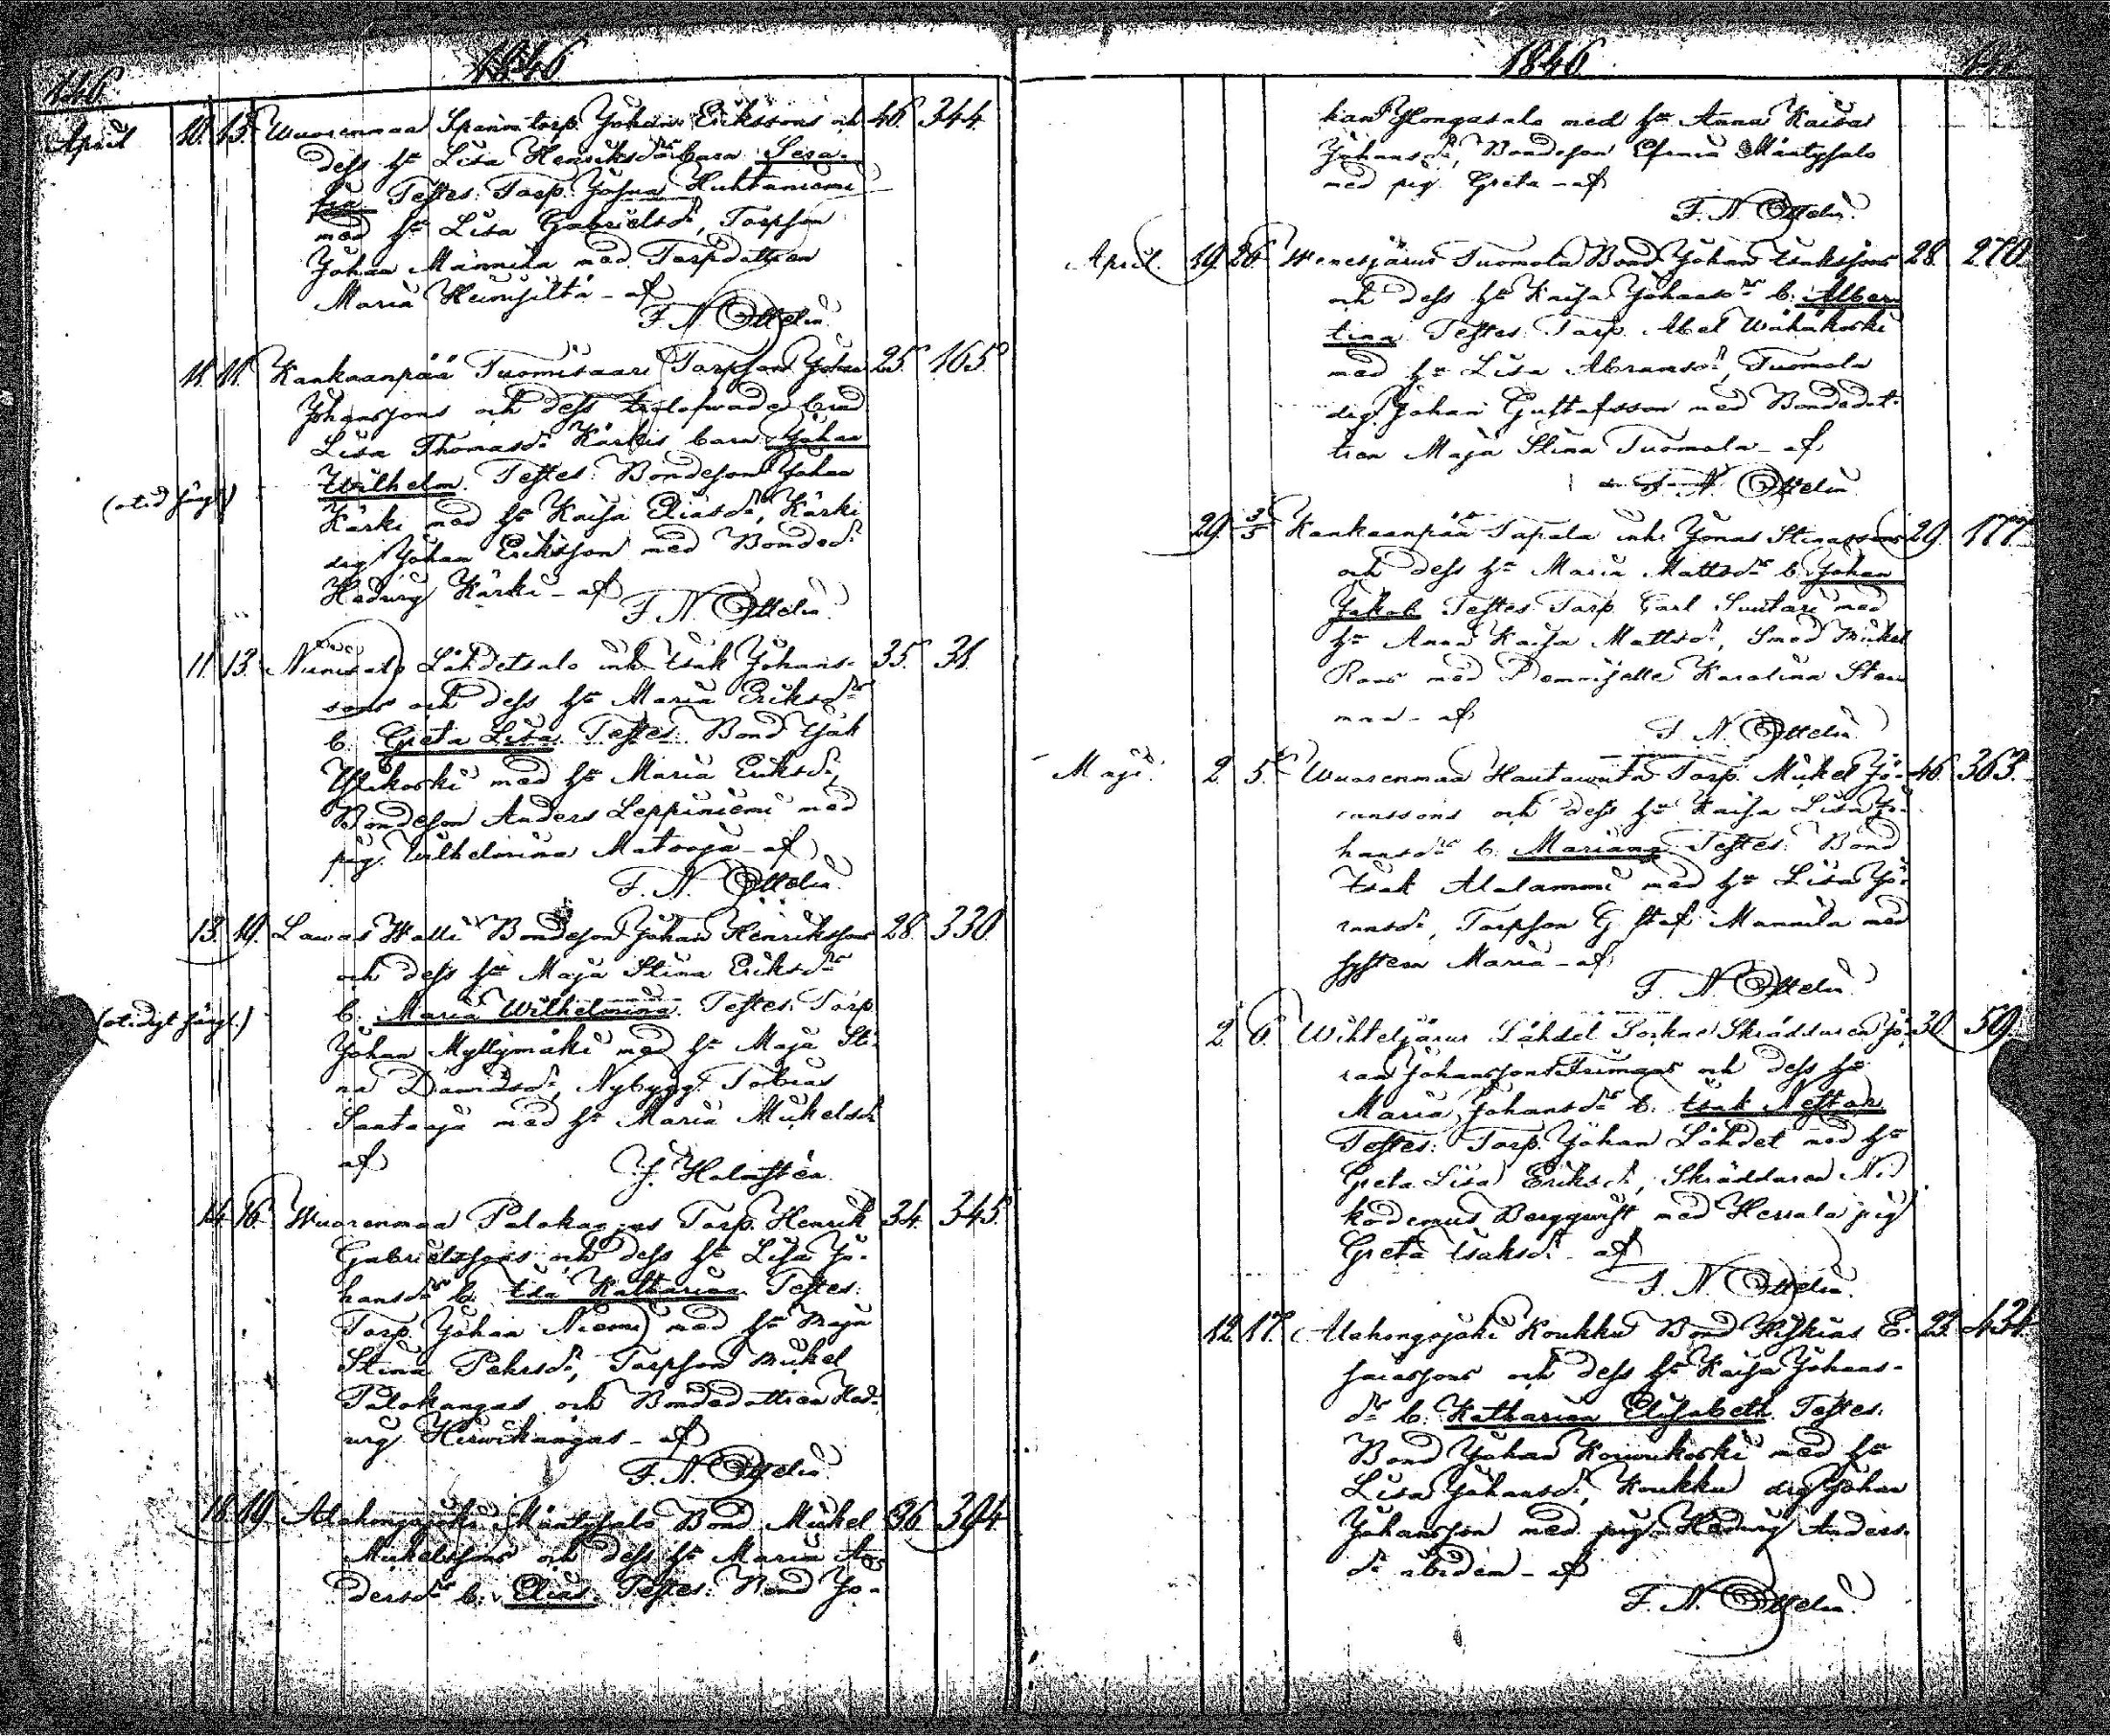 146
1846
April 10. 13. Wuorenmaa Spännäri torp. Johan Erikssons och 46. 344.
dess h:u Lisa Henriksd:rs barn Sera-
fia Testes: Torp. Josua Huhtaniemi
med h:u Lisa Gabrielsd:r, Torpson
Johan Männikkö med Torpdottren
Maria Heinisilta - af
F. N. Ottelin.
11. 11. Kankaanpää Tuomisaari Torpson Johan 25. 165.
Johanssons och dess trolofwade brud
Lisa Thomasd:r Kärkis barn Johan
Wilhelm. Testes: Bondeson Johan
(otid. förgl.)
Kärki med h:u Kaisa Eliasd:r, Kärki
drg Johan Eriksson med Bonded:r
Hedwig Kärki - af
F. N. Ottelin.
11. 13. Niinisalo Lähdetsalo inh. Isak Johans- 35. 31.
sons och dess h:u Maria Eriksd:rs
b. Greta Lisa. Testes: Bond. Isak
Ylikoski med h:u Maria Eriksd:r,
Bondeson Anders Leppiniemi med
pig. Wilhelmina Matooja - af
F. N. Ottelin.
13. 19. Lawas Walli Bondeson Johan Henrikssons 28. 330.
och dess h:u Maja Stina Eriksd:rs
b. Maria Wilhelmina. Testes: Torp.
(otidigt förgl.)
Johan Myllymäki med h:u Maja Sti-
na Dawidsd:r, Nybygg. Tobias
Santaoja med h:u Maria Mikelsd:r
af
J. Holmstén.
14. 16. Wuorenmaa Palokangas Torp. Henrik 34. 345.
Gabrielssons och dess h:u Lisa Jo-
hansd:rs b. Ida Katharina. Testes:
Torp. Johan Niemi med h:u Maja
Stina Pehrsd:r, Torpson Mikel
Palokangas och Bondedottren Hed-
wig Hirwikangas - af
F. N. Ottelin.
18. 19. Alahongajoki Mäntysalo Bond. Mikel 36. 394.
Mikelssons och dess h:u Maria An-
dersd:rs b. Elias. Testes: Bond Jo-
1846
han Hongasalo med h:u Anna Kaisa
Johansd:r, Bondeson Efraim Mäntysalo
med pig. Greta - af
F. N. Ottelin.
April. 19. 26. Wenesjärwi Tuomola Bond. Johan Isakssons 28. 270.
och dess h:u Kaisa Johansd:rs b. Alber-
tina. Testes: Torp. Abel Wähäkoski
med h:u Lisa Abramsd:r, Tuomola
drg. Johan Gustafsson med Bondedot-
tren Maja Stina Tuomola - af
F. N. Ottelin.
29. 3/5 Kankaanpää Tapala inh. Jonas Stenassons 29. 177.
och dess h:u Maria Mattsd:rs b. Johan
Jakob. Testes: Torp. Carl Suutari med
h:u Anna Kaisa Mattsd:r, Smed Mikel
Roos med Demmiselle Karolina Sten-
man - af
F. N. Ottelin.
Maji. 2. 5. Wuorenmaa Hautawuta Torp. Mikel Jö- 46. 363.
ranssons och dess h:u Kaisa Lisa Jo-
hansd:rs b. Mariana. Testes: Bond
Isak Alalammi med h:u Lisa Jö-
ransd:r, Torpson Gustaf Mannila med
system Maria - af
F. N. Ottelin.
2. 6. Wihteljärwi Lähdet Sockne Skräddaren Jö- 30. 59.
ran Johansson Friman och dess h:u
Maria Johansd:rs b. Isak Nestor.
Testes: Torp. Johan Lähdet med h:u
Greta Lisa Eriksd:r, Skräddaren Ni-
kodemus Bergqwist med Herrala pig.
Greta Isaksd:r - af
F. N. Ottelin.
12. 17. Alahongajoki Koukku Bond Hiskias E- 23. 434.
saiassons och dess h:u Kaisa Johans-
d:rs b. Katharina Elisabeth. Testes:
Bond Johan Kouwukoski med h:u
Lisa Johansd:r, Koukku drg Johan
Johansson med pig. Hedwig Anders-
d:r ibidem - af
F. N. Ottelin.